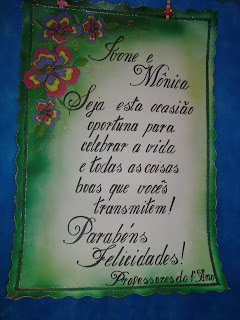 Ivone e
Mônica
Seja esta ocasião
oportuna para
celebrar a vida
e todas as coisas
boas que vocês
transmitem!
Parabéns
Felicidades!
Professores do 1º Ano